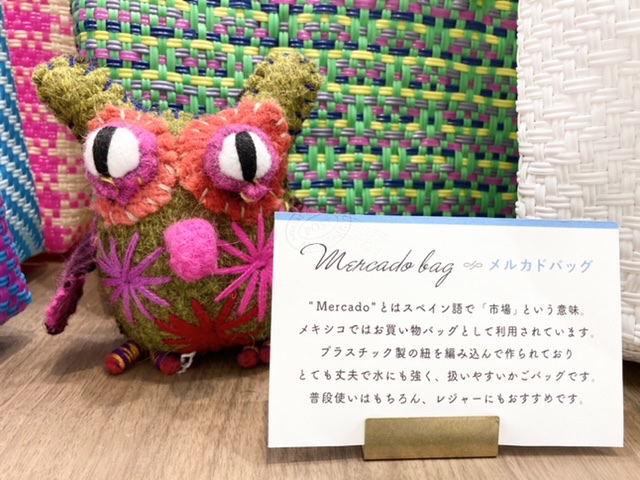 Mercado bag メルカドバッグ
"Mercado"とはスペイン語で「市場」という意味。
メキシコではお買い物バッグとして利用されています。
プラスチック製の紐を編み込んで作られており
とても丈夫で水にも強く、扱いやすいかごバッグです。
普段使いはもちろん、レジャーにもおすすめです。